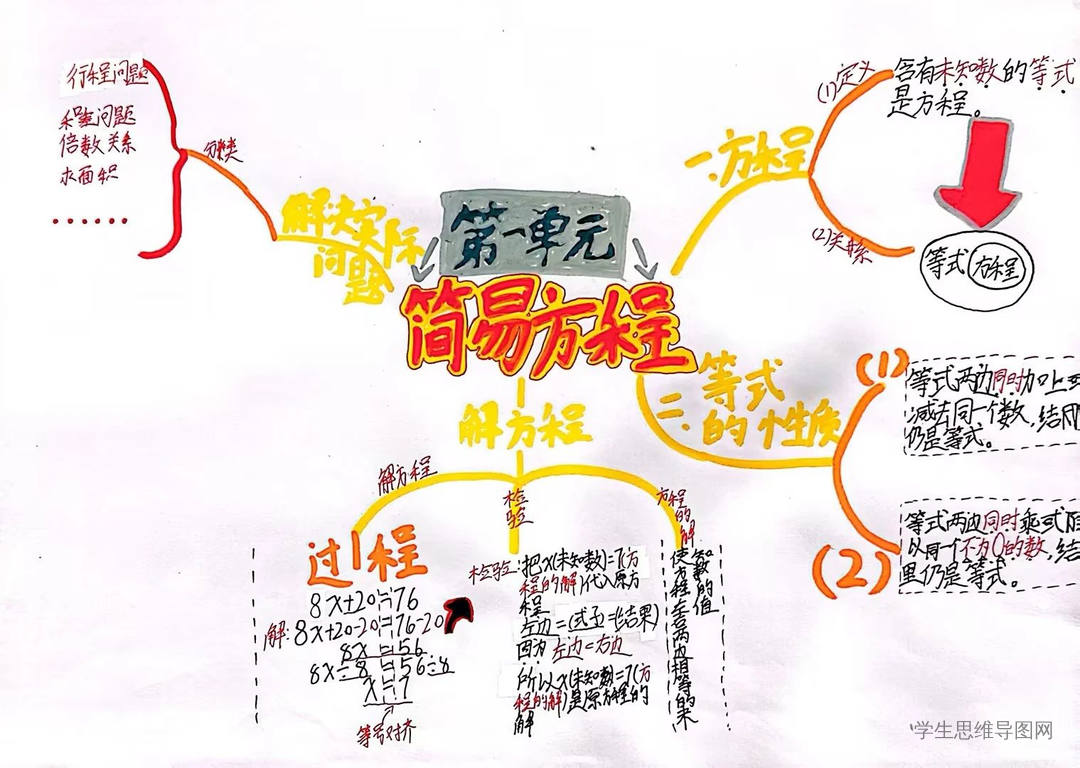 第一单元
简易方程
一、方程
(1)定义
含有未知数的等式
是方程。
(2)关系
等式
方程
二、等式
的性质
(1)
等式两边同时加上或
减去同一个数,结果
仍是等式。
(2)
等式两边同时乘或除
以同一个不为0的数,结
果仍是等式。
解方程
解方程
过程
8x+20=76
解:8x+20-20=76-20
8x=56
8x÷8=56÷8
x=7
等号对齐
检
验
检验:把x(未知数)=7(方
程的解)代入原方
程
左边=(式子)=(结果)
因为左边=右边
所以x(未知数)=7(方
程的解)是原方程的
解
方程的解
使方程左右两边相等的未
知数的值
解决实际
问题
分类
行程问题
和差问题
倍数关系
求面积
······
学生思维导图网